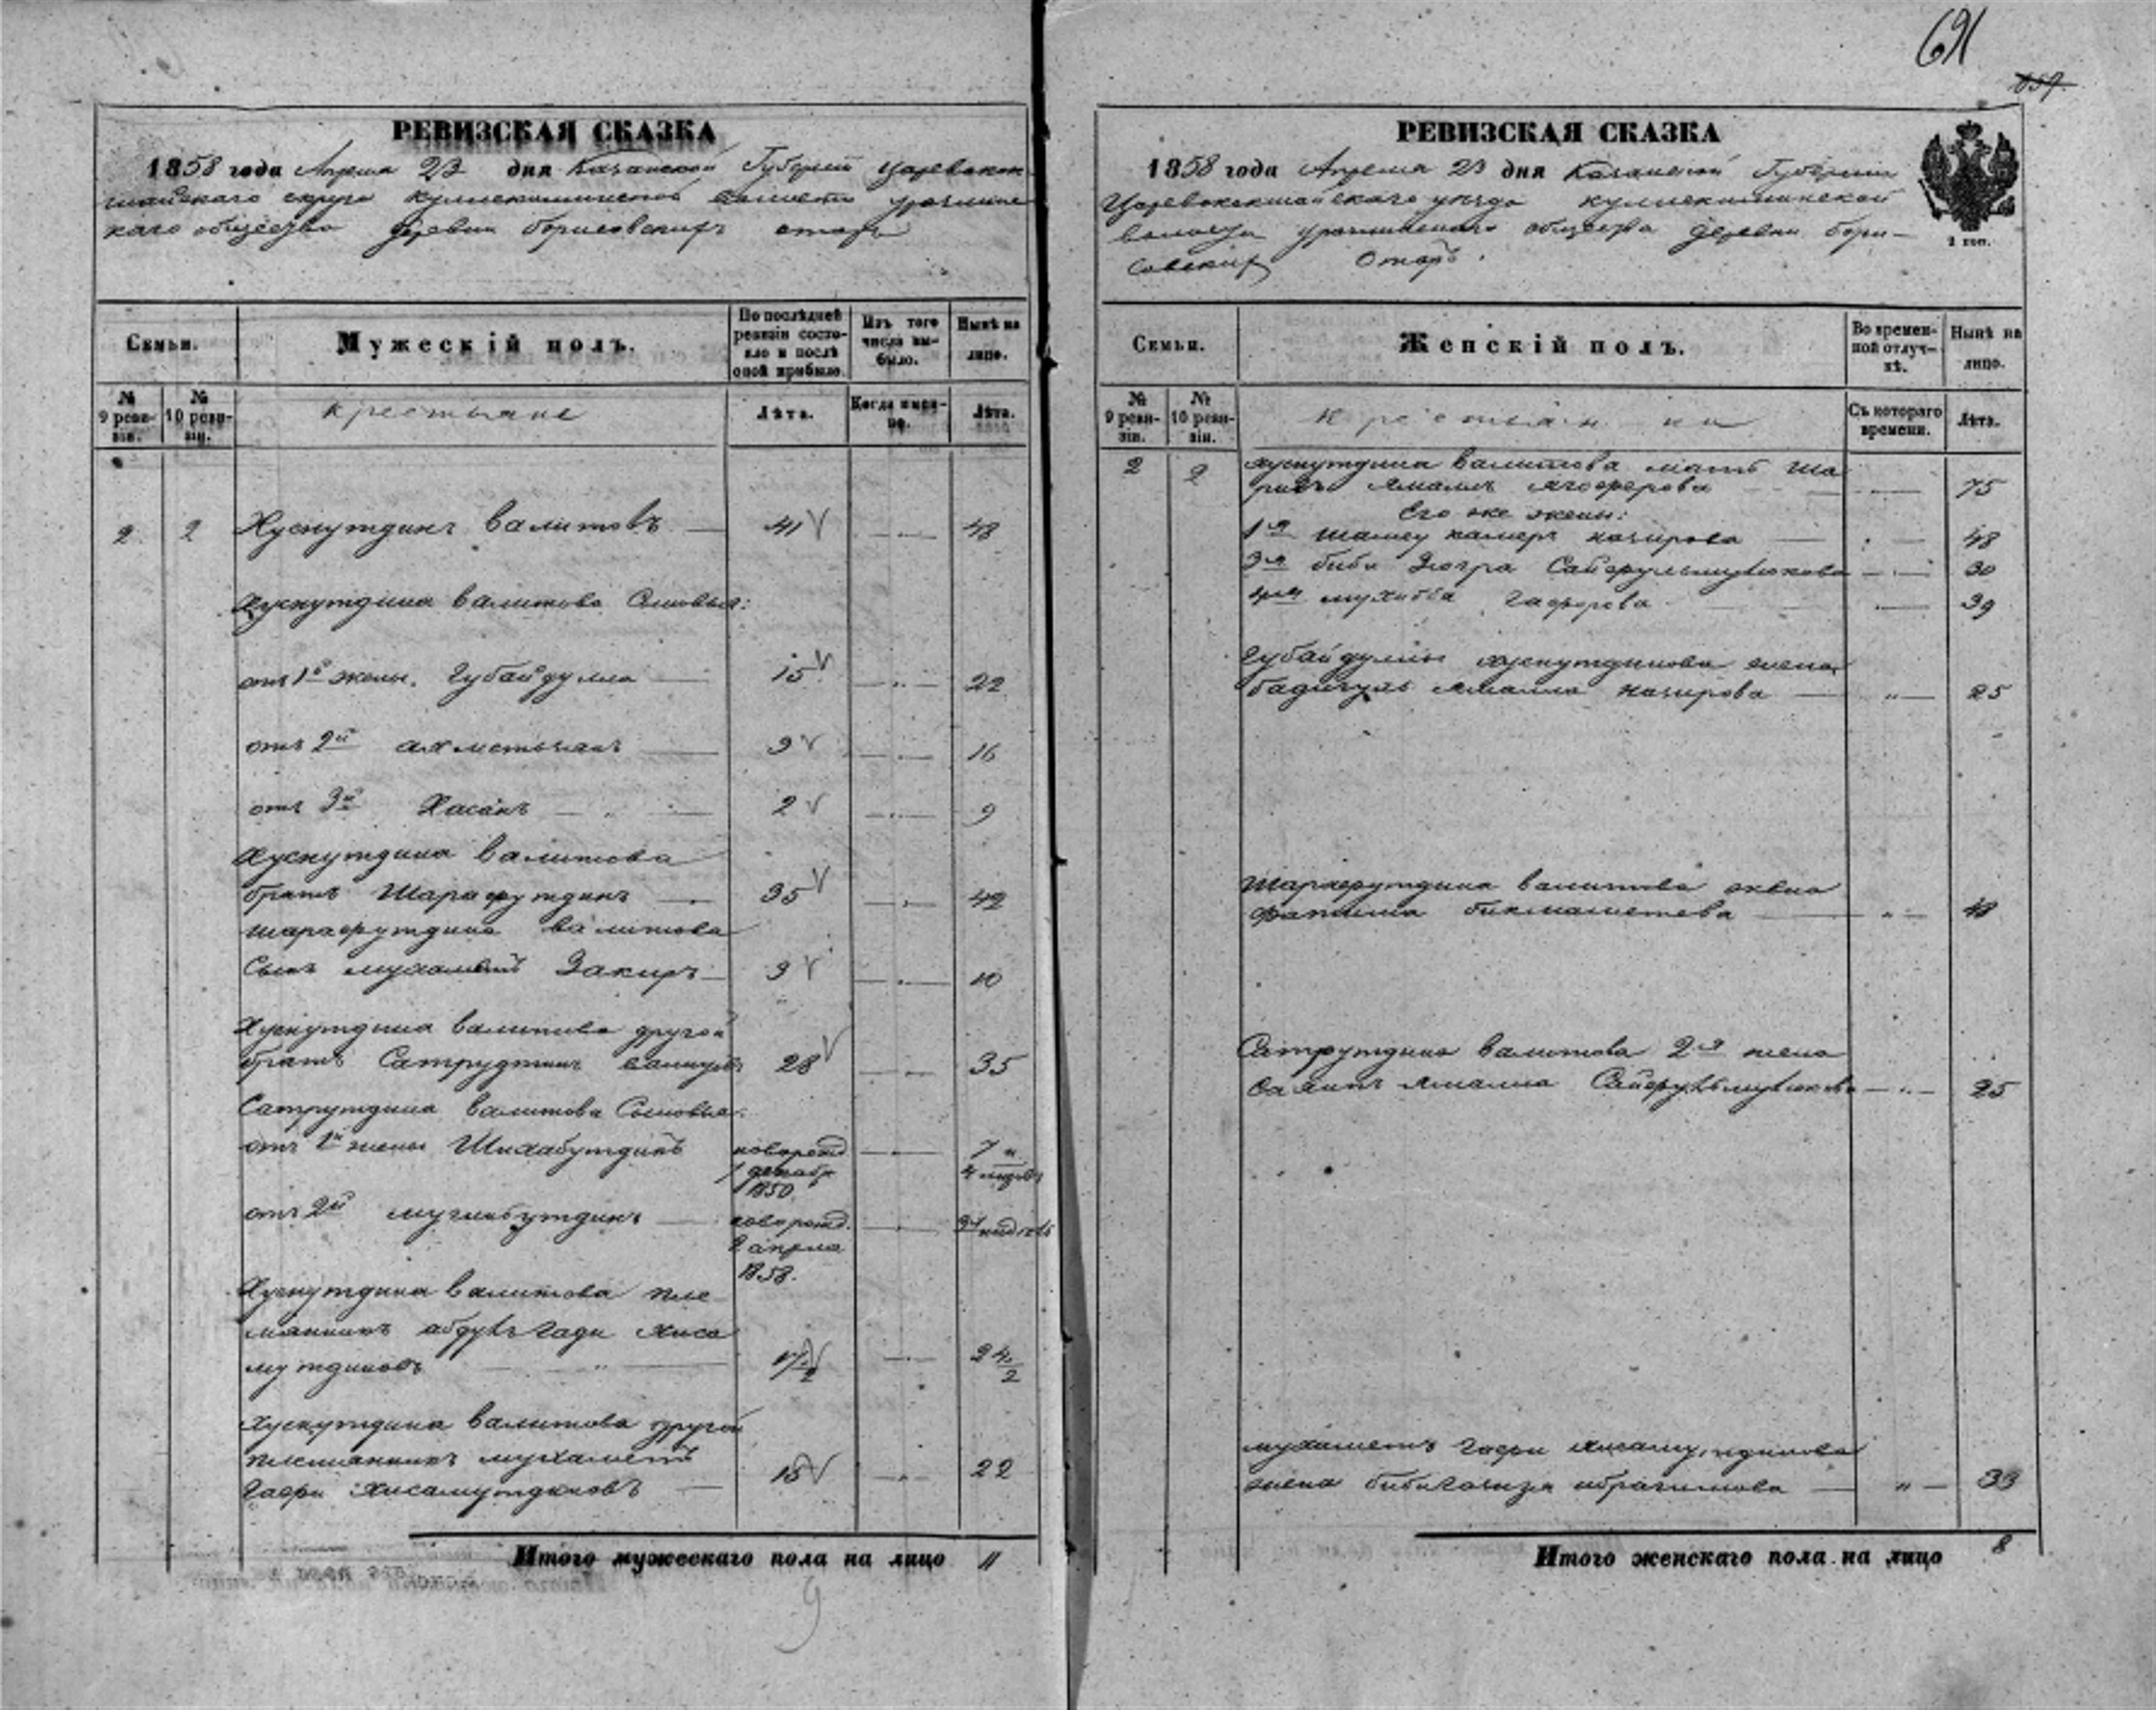 691
657.
РЕВИЗСКАЯ СКАЗКА
1858 года Апреля 23 дня Казанской Губерніи Царевокок
шайскаго округа волости
каго общества деревни борисовскихъ отаръ
Семьи.
Мужескій полъ.
По послѣдней ревизіи состояло и послѣ оной прибыло.
Изъ того числа выбыло.
Нынѣ на лицо.
№ 9 ревизіи.
№ 10 ревизіи.
крестьяне
Лѣта.
Когда именно.
Лѣта.
2 2 Хуснутдинъ валитовъ — 41 — 48
Хуснутдина валитова Сыновья:
отъ 1й жены. Губайдулла — 15 — 22
отъ 2й ахметьянъ — 9 — 16
отъ 3й Хасанъ — 2 — 9
Хуснутдина валитова
братъ Шарафутдинъ — 35 — 42
шарафутдина валитова
Сынъ мухаметъ Закиръ — 3 — 10
Хуснутдина валитова другой
братъ 28 — 35
Сатрутдина валитова Сыновья.
отъ 1й жены Шигабутдинъ новорожд — 7 и
1 декабр 4 месяц
1850.
отъ 2й новорожд. — 3 недели
2 апреля
1858.
Хуснутдина валитова пле
мянникъ абдулъ гади хиса
мутдиновъ — 17/2 — 24/2
Хуснутдина валитова другой
племянникъ мухаметъ
гафри хисамутдиновъ — 15 — 22
Итого мужескаго пола на лицо 11
9
РЕВИЗСКАЯ СКАЗКА
1858 года Апреля 23 дня Казанской Губерніи
Царевококшайскаго уезда
волости общества деревни бори-
совскихъ Отаръ.
1 коп.
Семьи.
Женскій полъ.
Во временной отлучкѣ.
Нынѣ на лицо.
№ 9 ревизіи.
№ 10 ревизіи.
крестьянки
Съ котораго времени.
Лѣта.
2 2 хуснутдина валитова мать ша
рифъ ямалъ ягоферова — 75
Его же жены:
1я камеръ назирова — 48
3я биби Зюгра Сайфульмулюкова — 30
4я гафорова — 39
Губайдуллы хуснутдинова жена
бадигулъ ямалла назирова — 25
Шарафутдина валитова жена
фатима бикмаметева — 48
Сатрутдина валитова 2я жена
ямалла Сайфульмулюкова — 25
мухаметъ гафри хисамутдинова
жена бибигазиза ибрагимова — 33
Итого женскаго пола на лицо 8